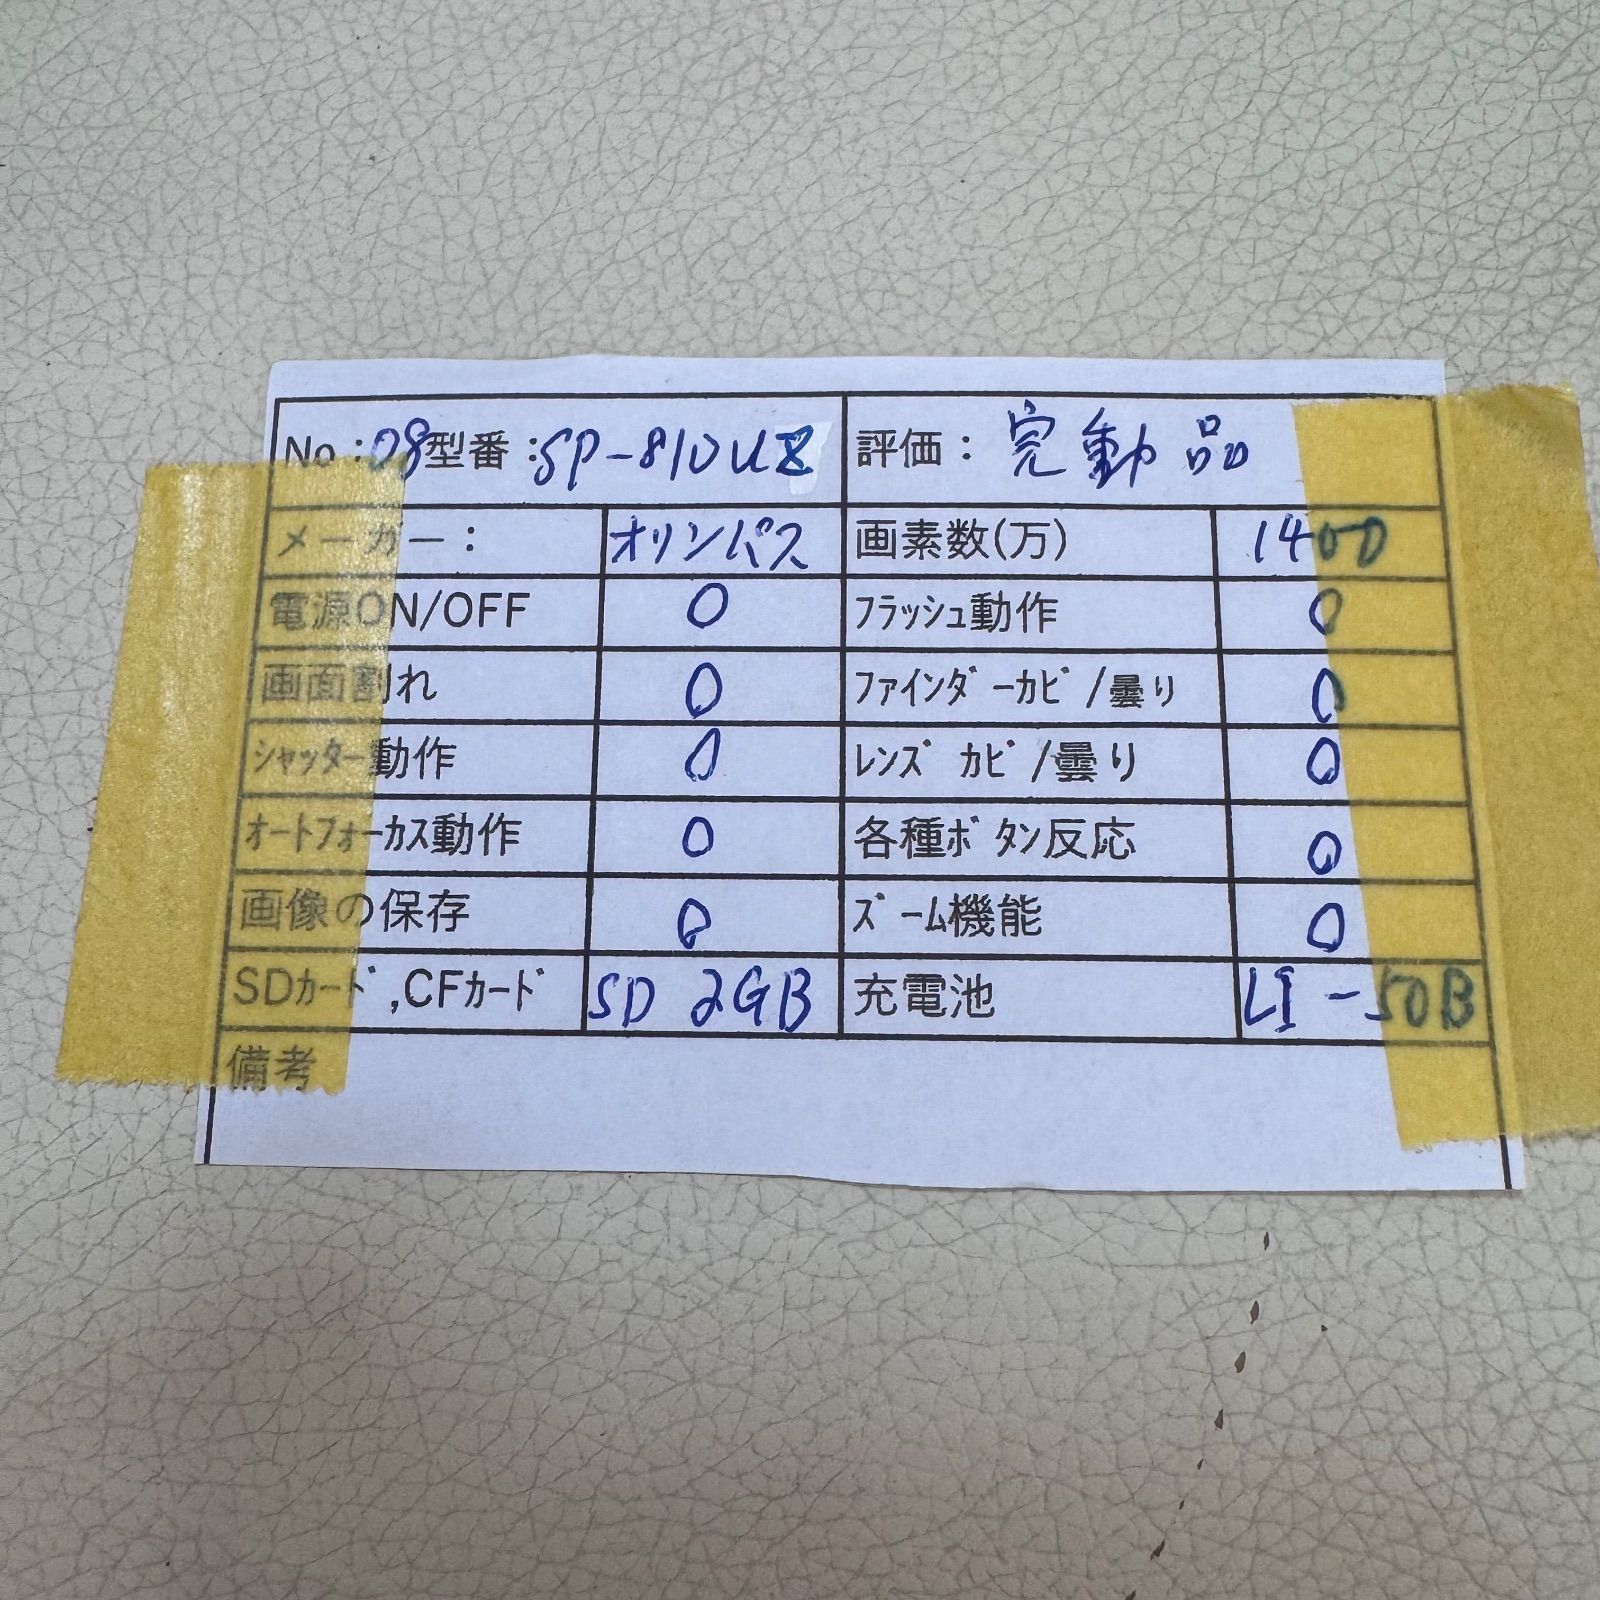 No：08型番：SP-810UZ 評価：完動品
メーカー： オリンパス 画素数(万) 1400
電源ON/OFF 0 ﾌﾗｯｼｭ動作 0
画面割れ 0 ﾌｧｲﾝﾀﾞｰｶﾋﾞ/曇り 0
ｼｬｯﾀｰ動作 0 ﾚﾝｽﾞｶﾋﾞ/曇り 0
ｵｰﾄﾌｫｰｶｽ動作 0 各種ﾎﾞﾀﾝ反応 0
画像の保存 0 ｽﾞｰﾑ機能 0
SDｶｰﾄﾞ,CFｶｰﾄﾞ SD 2GB 充電池 LI-50B
備考